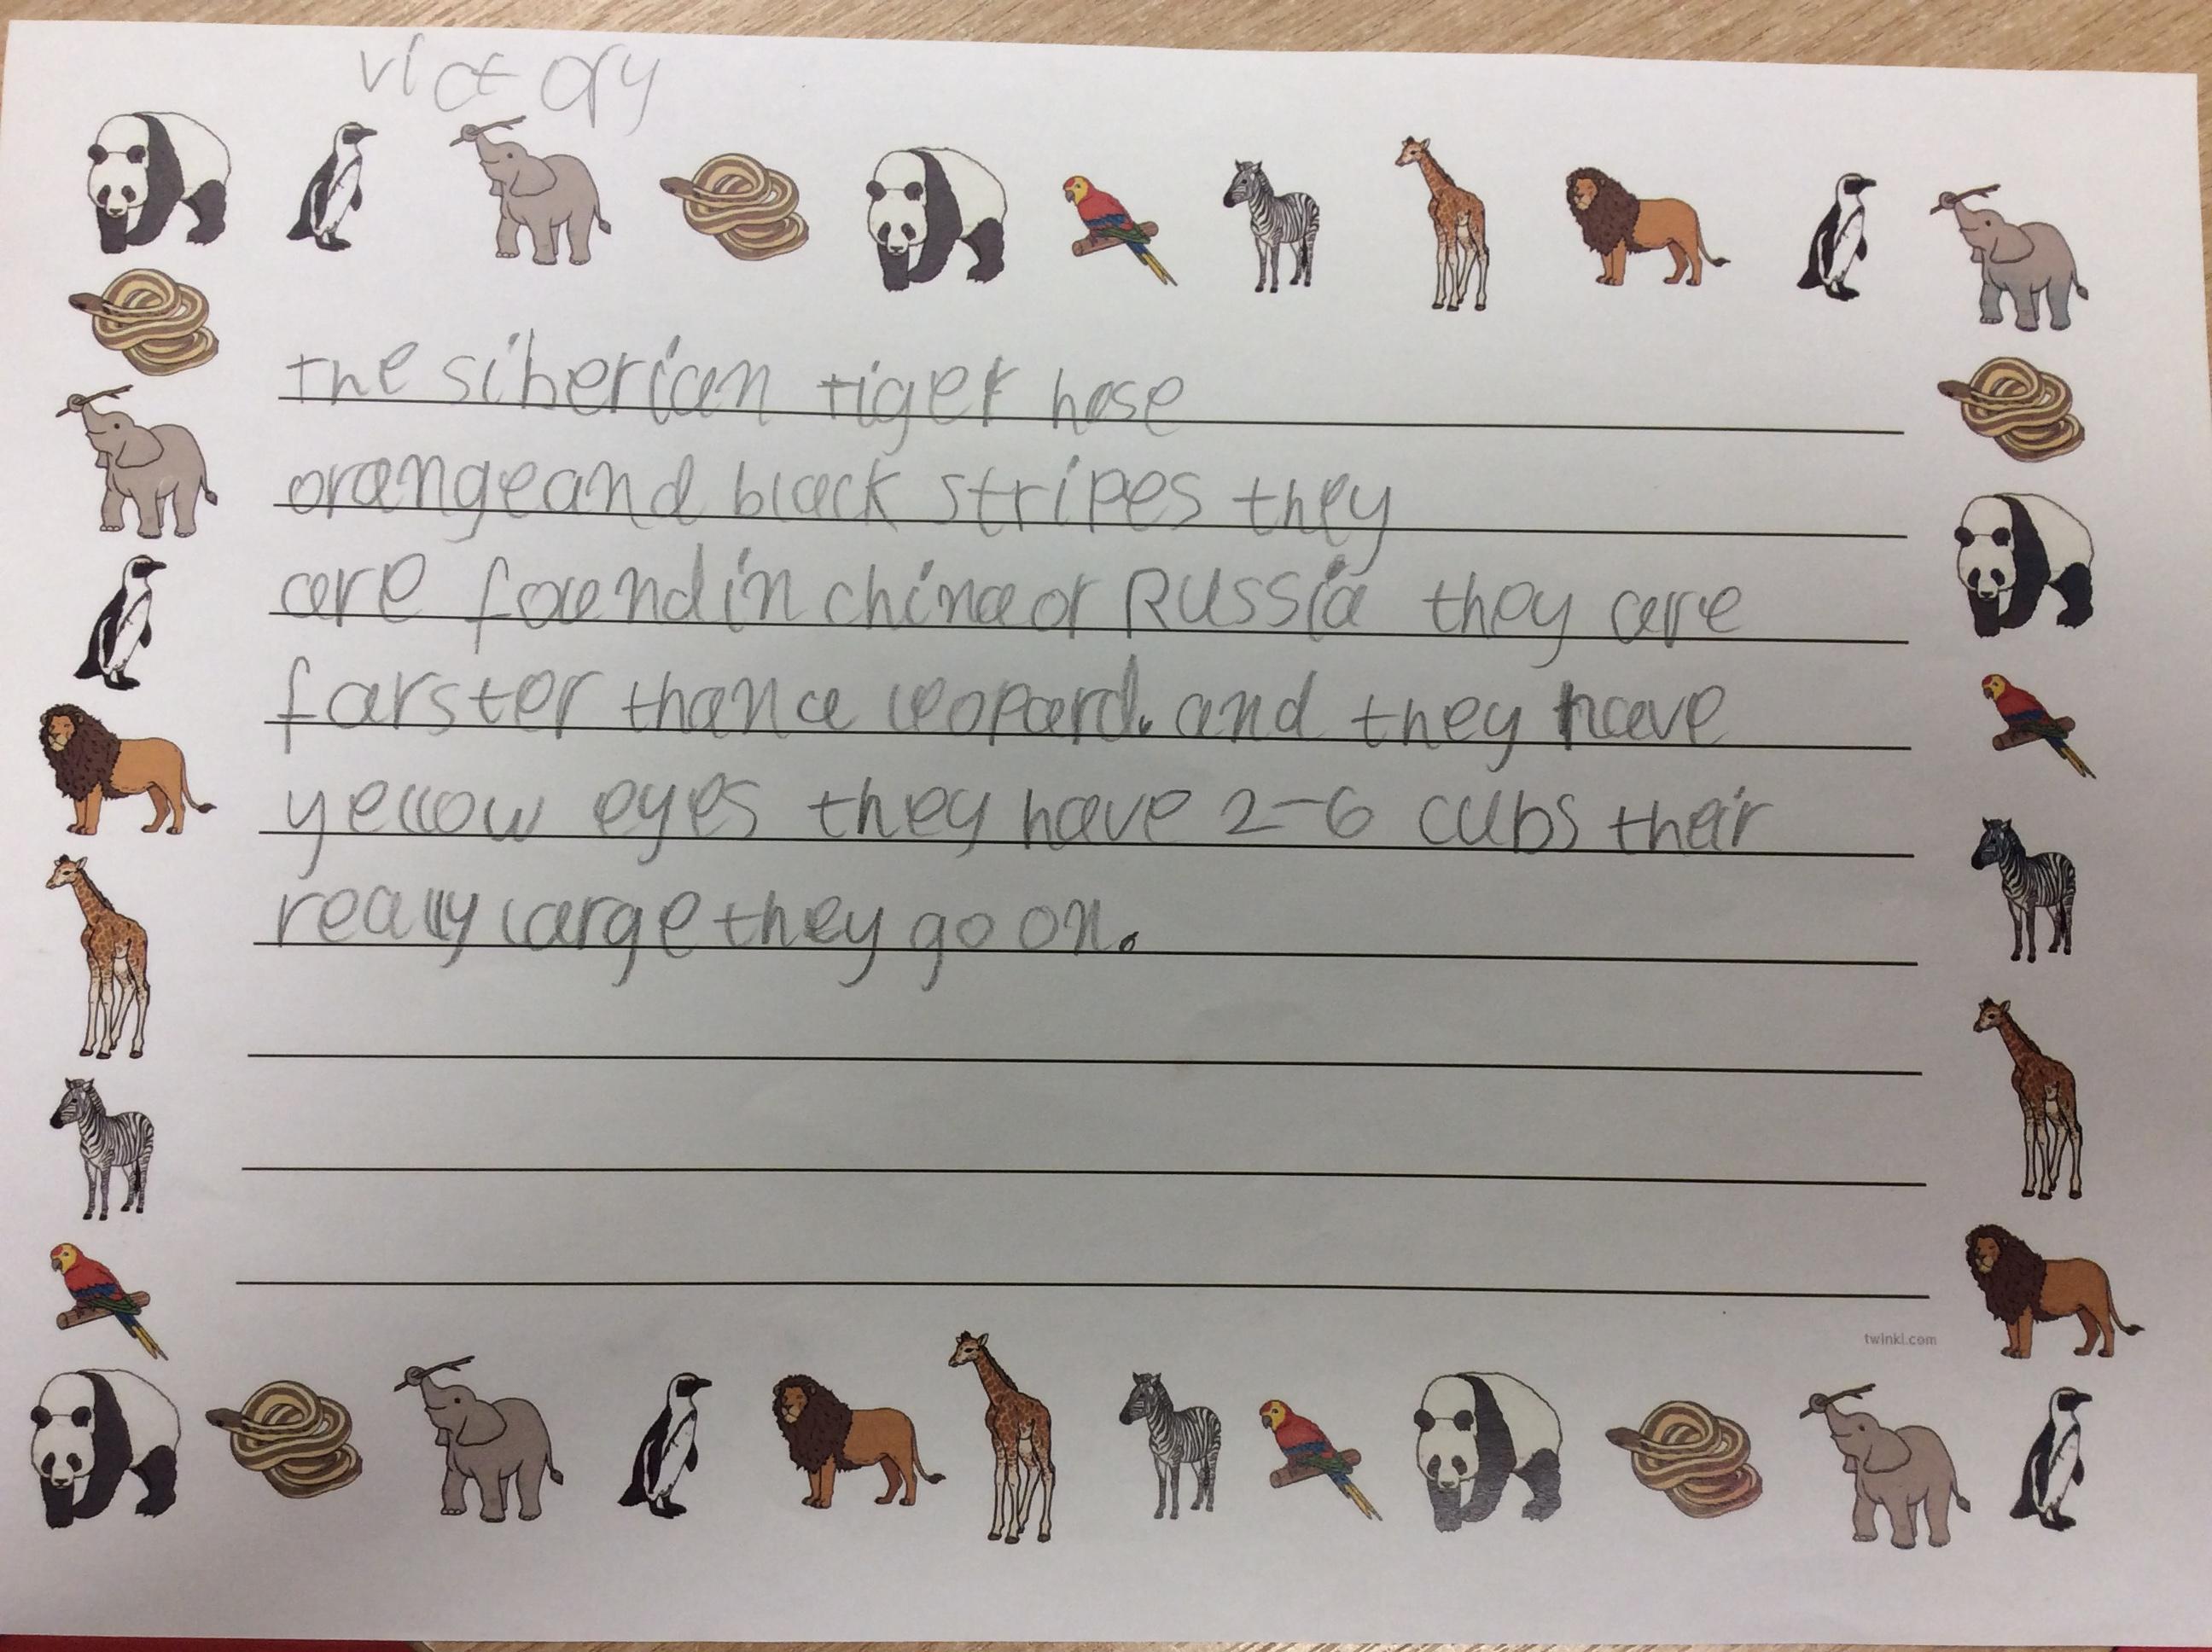 victory
the siberian tiger hase
orange and black stripes they
are found in china or Russia they are
farster than a leopard. and they have
yellow eyes they have 2-6 cubs their
really large they go on.
twinkl.com